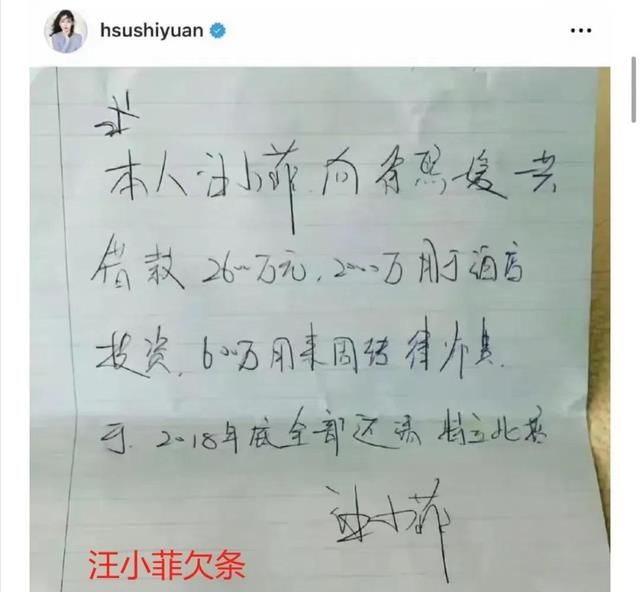 hsushiyuan
本人汪小菲向徐熙媛共
借款2600万元,2000万用于酒店
投资,600万用来周转律师费.
于2018年底全部还清 特立此据
汪小菲
汪小菲欠条